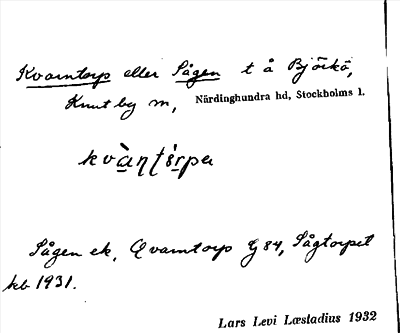 Kvarntorp eller Sågen t å Björkö,
Knutby sn, Närdinghundra hd, Stockholms l.
Sågen ek, Qvarntorp G 84, Sågtorpet
kb 1931.
Lars Levi Læstadius 1932